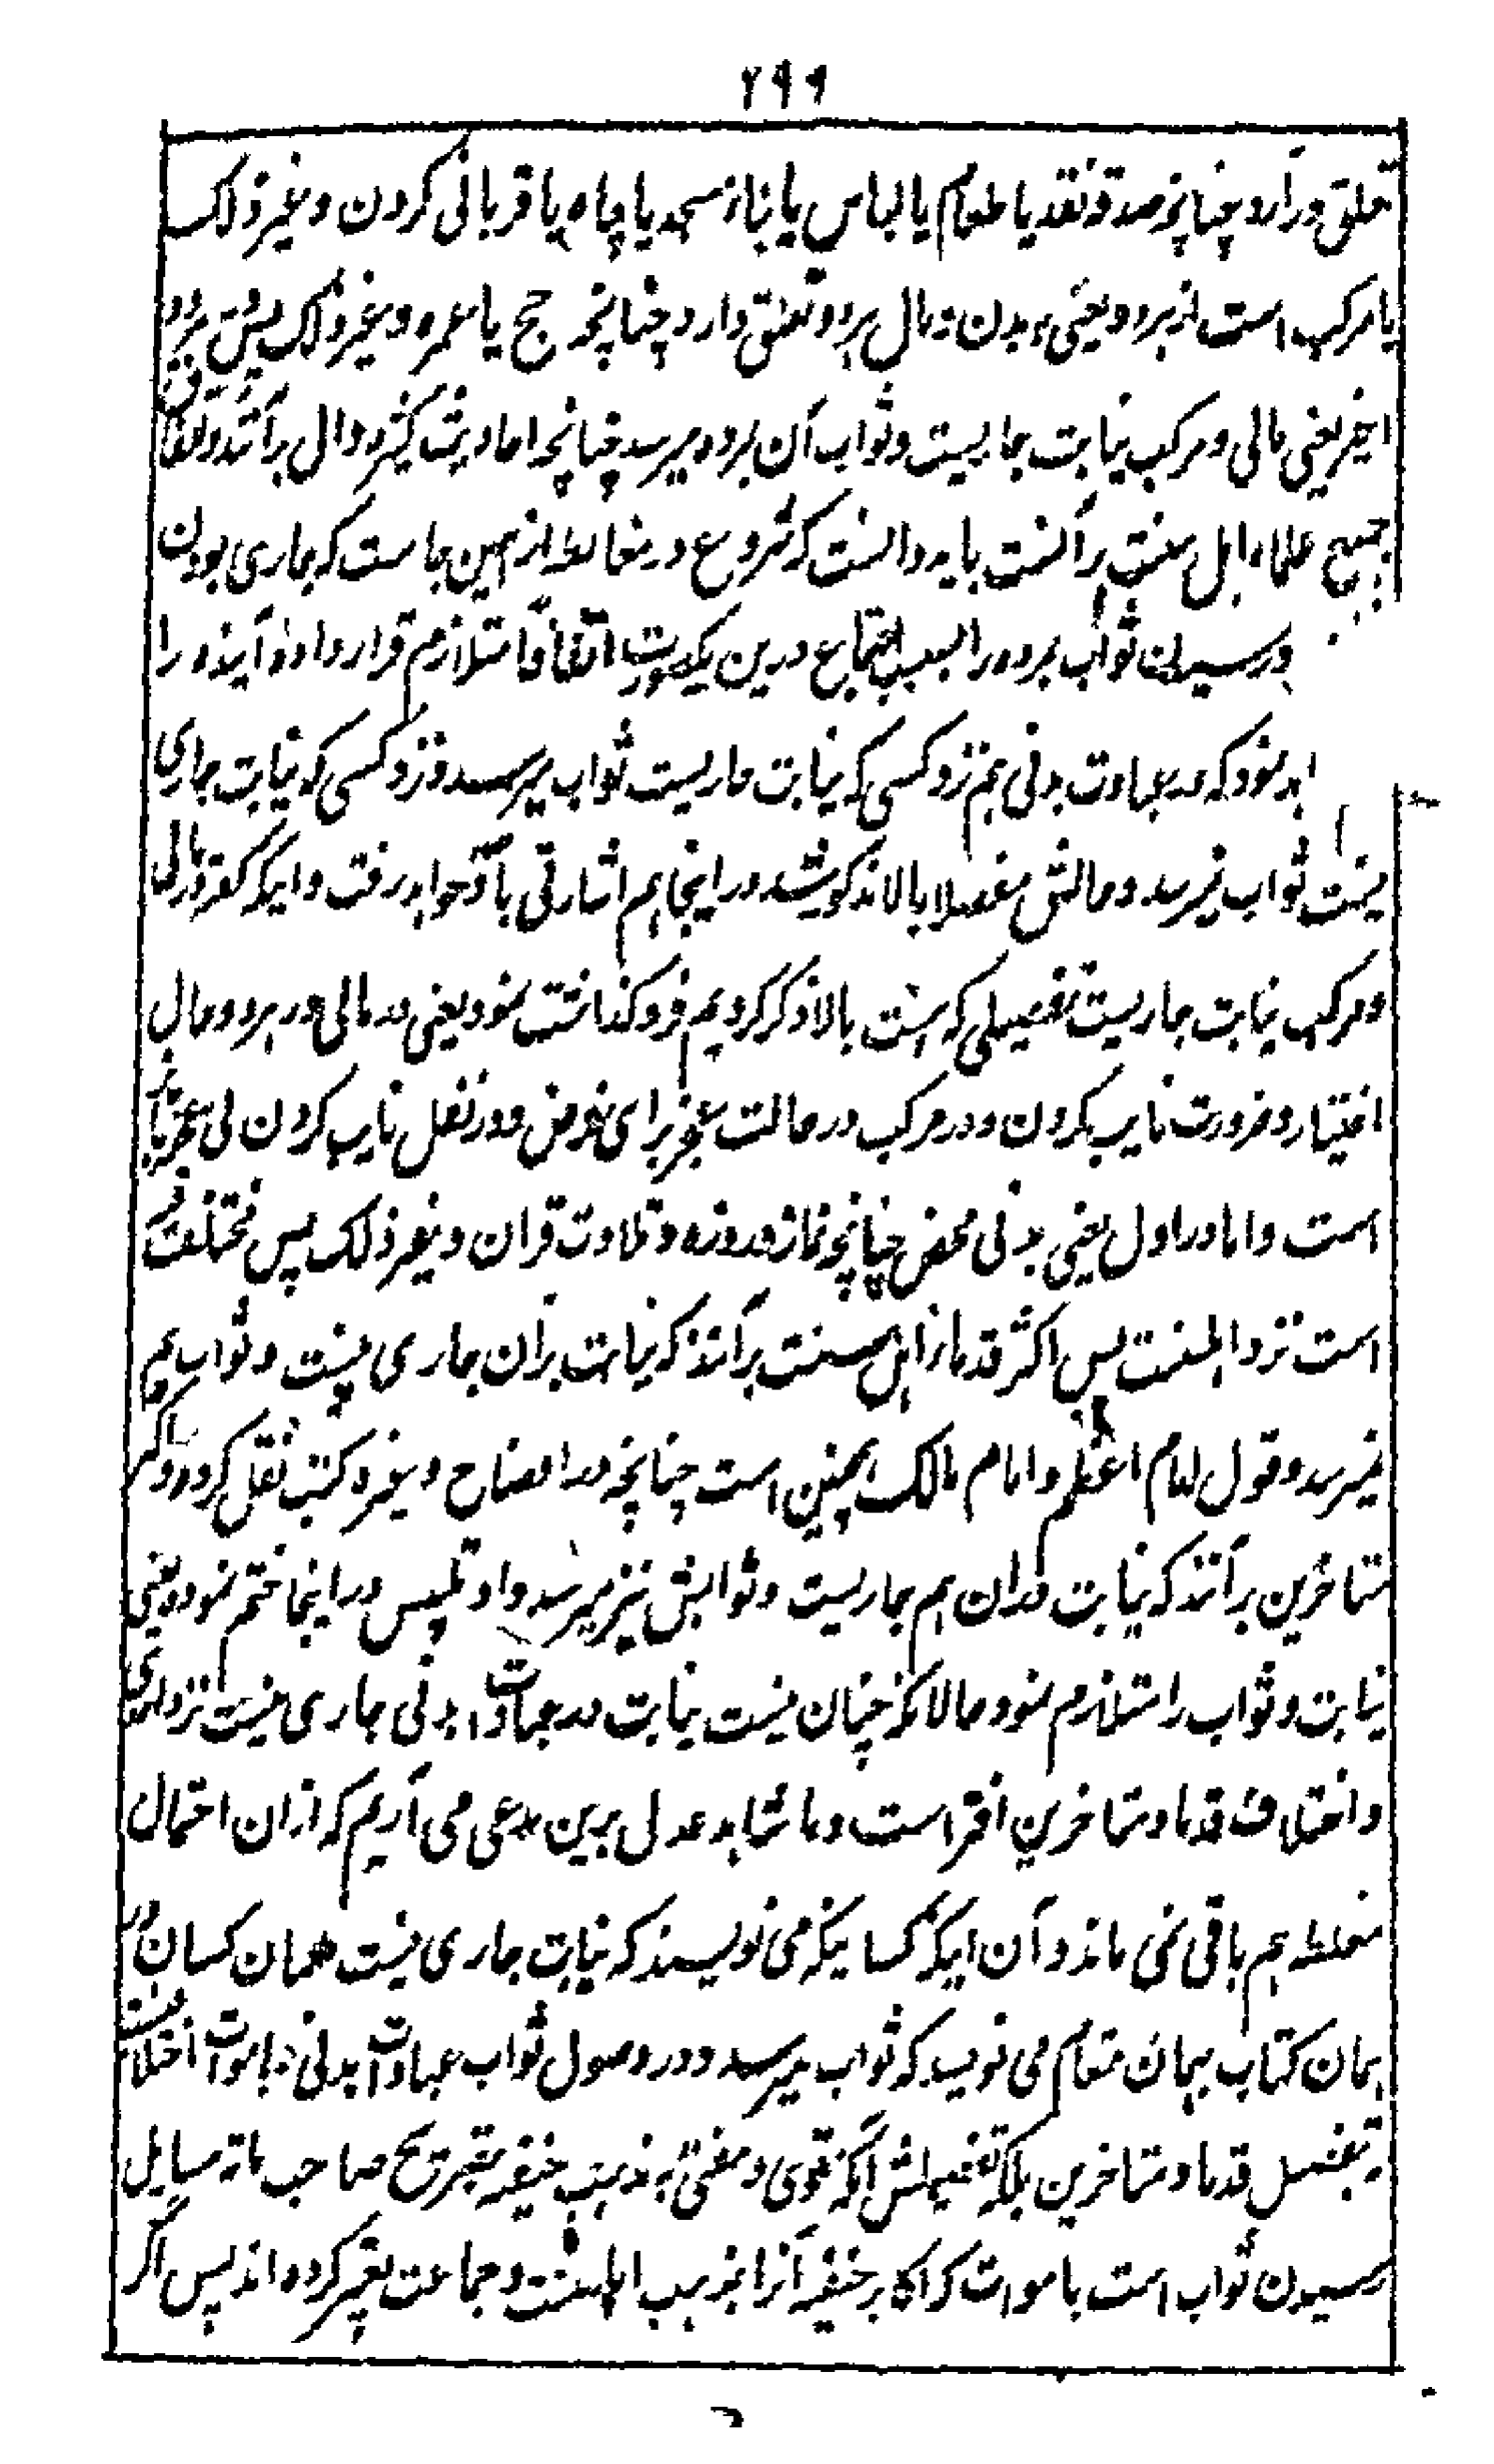 ۲۹۹
تعلق درآرد چنانچه صدقه نقد یا طعام یا لباس یا بناء مسجد یا چاه یا قربانی کردن و غیر ذلک
یا مرکب است از هر دو یعنی به بدن و مال هر دو تعلق دارد چنانچه حج یا عمره و غیر ذلک پس در هر دو
اخیر یعنی مالی و مرکب نیابت جاریست و ثواب آن بمرده میرسد چنانچه احادیث کثیره دال برآنند و اتفاق
جمیع علماء اهل سنت برآنست باید دانست که شروع در مغالطه از همین جا ست که جاری بودن
و رسیدن ثواب مرده را بسبب اجتماع درین یکصورت اتفاقا متلازم قرار داده آینده را
نمود که در عبادت بدنی هم نزد کسی که نیابت جاریست ثواب میرسد و نزد کسی که نیابت جاری
نیست ثواب نمیرسد و حالش مفصلا بالا مذکور شد در اینجا هم اشارتی بآن خواهد رفت و اینکه گفته در مالی
و مرکب نیابت جاریست تفصیلی که است بالا ذکر کردیم فروگذاشت نمود یعنی در مالی در هر دو حال
اختیار و ضرورت نایب کردن و در مرکب در حالت عجز برای فرض و در نفل نایب کردن بی عجز جائز
است و اما در اول یعنی بدنی محض چنانچه نماز و روزه و تلاوت قران و غیر ذلک پس مختلف فیه
است نزد اهلسنت پس اکثر قدما از اهل سنت برآنند که نیابت بران جاری نیست و ثواب هم
نمیرسد و قول امام اعظم و امام مالک همچنین است چنانچه در ایضاح و غیره کتب نقل کرده و اکثر
متاخرین برآنند که نیابت دران هم جاریست و ثوابش نیز میرسد و او تلبیس در اینجا ختم نموده یعنی
نیابت و ثواب را متلازم نمود حالانکه چنان نیست نیابت در عبادات بدنی جاری نیست نزد احدی
و اختلاف قدما و متاخرین افترا است و ما شاهد عدل برین مدعی می آریم که ازان احتمال
مغلطه هم باقی نمی ماند و آن اینکه کسانیکه می نویسند که نیابت جاری نیست همان کسان در
همان کتاب بهمان مقام می نویسند که ثواب میرسد و در وصول ثواب عبادات بدنی باموات اختلاف است
نه بتفصیل قدما و متاخرین بلکه تفصیلش آنکه قوی و مفتی به مذهب حنفیه بتصریح صاحب مائة مسایل
رسیدن ثواب است باموات که اکابر حنفیه آنرا بمذهب اهلسنت و جماعت تعبیر کرده اند پس اگر